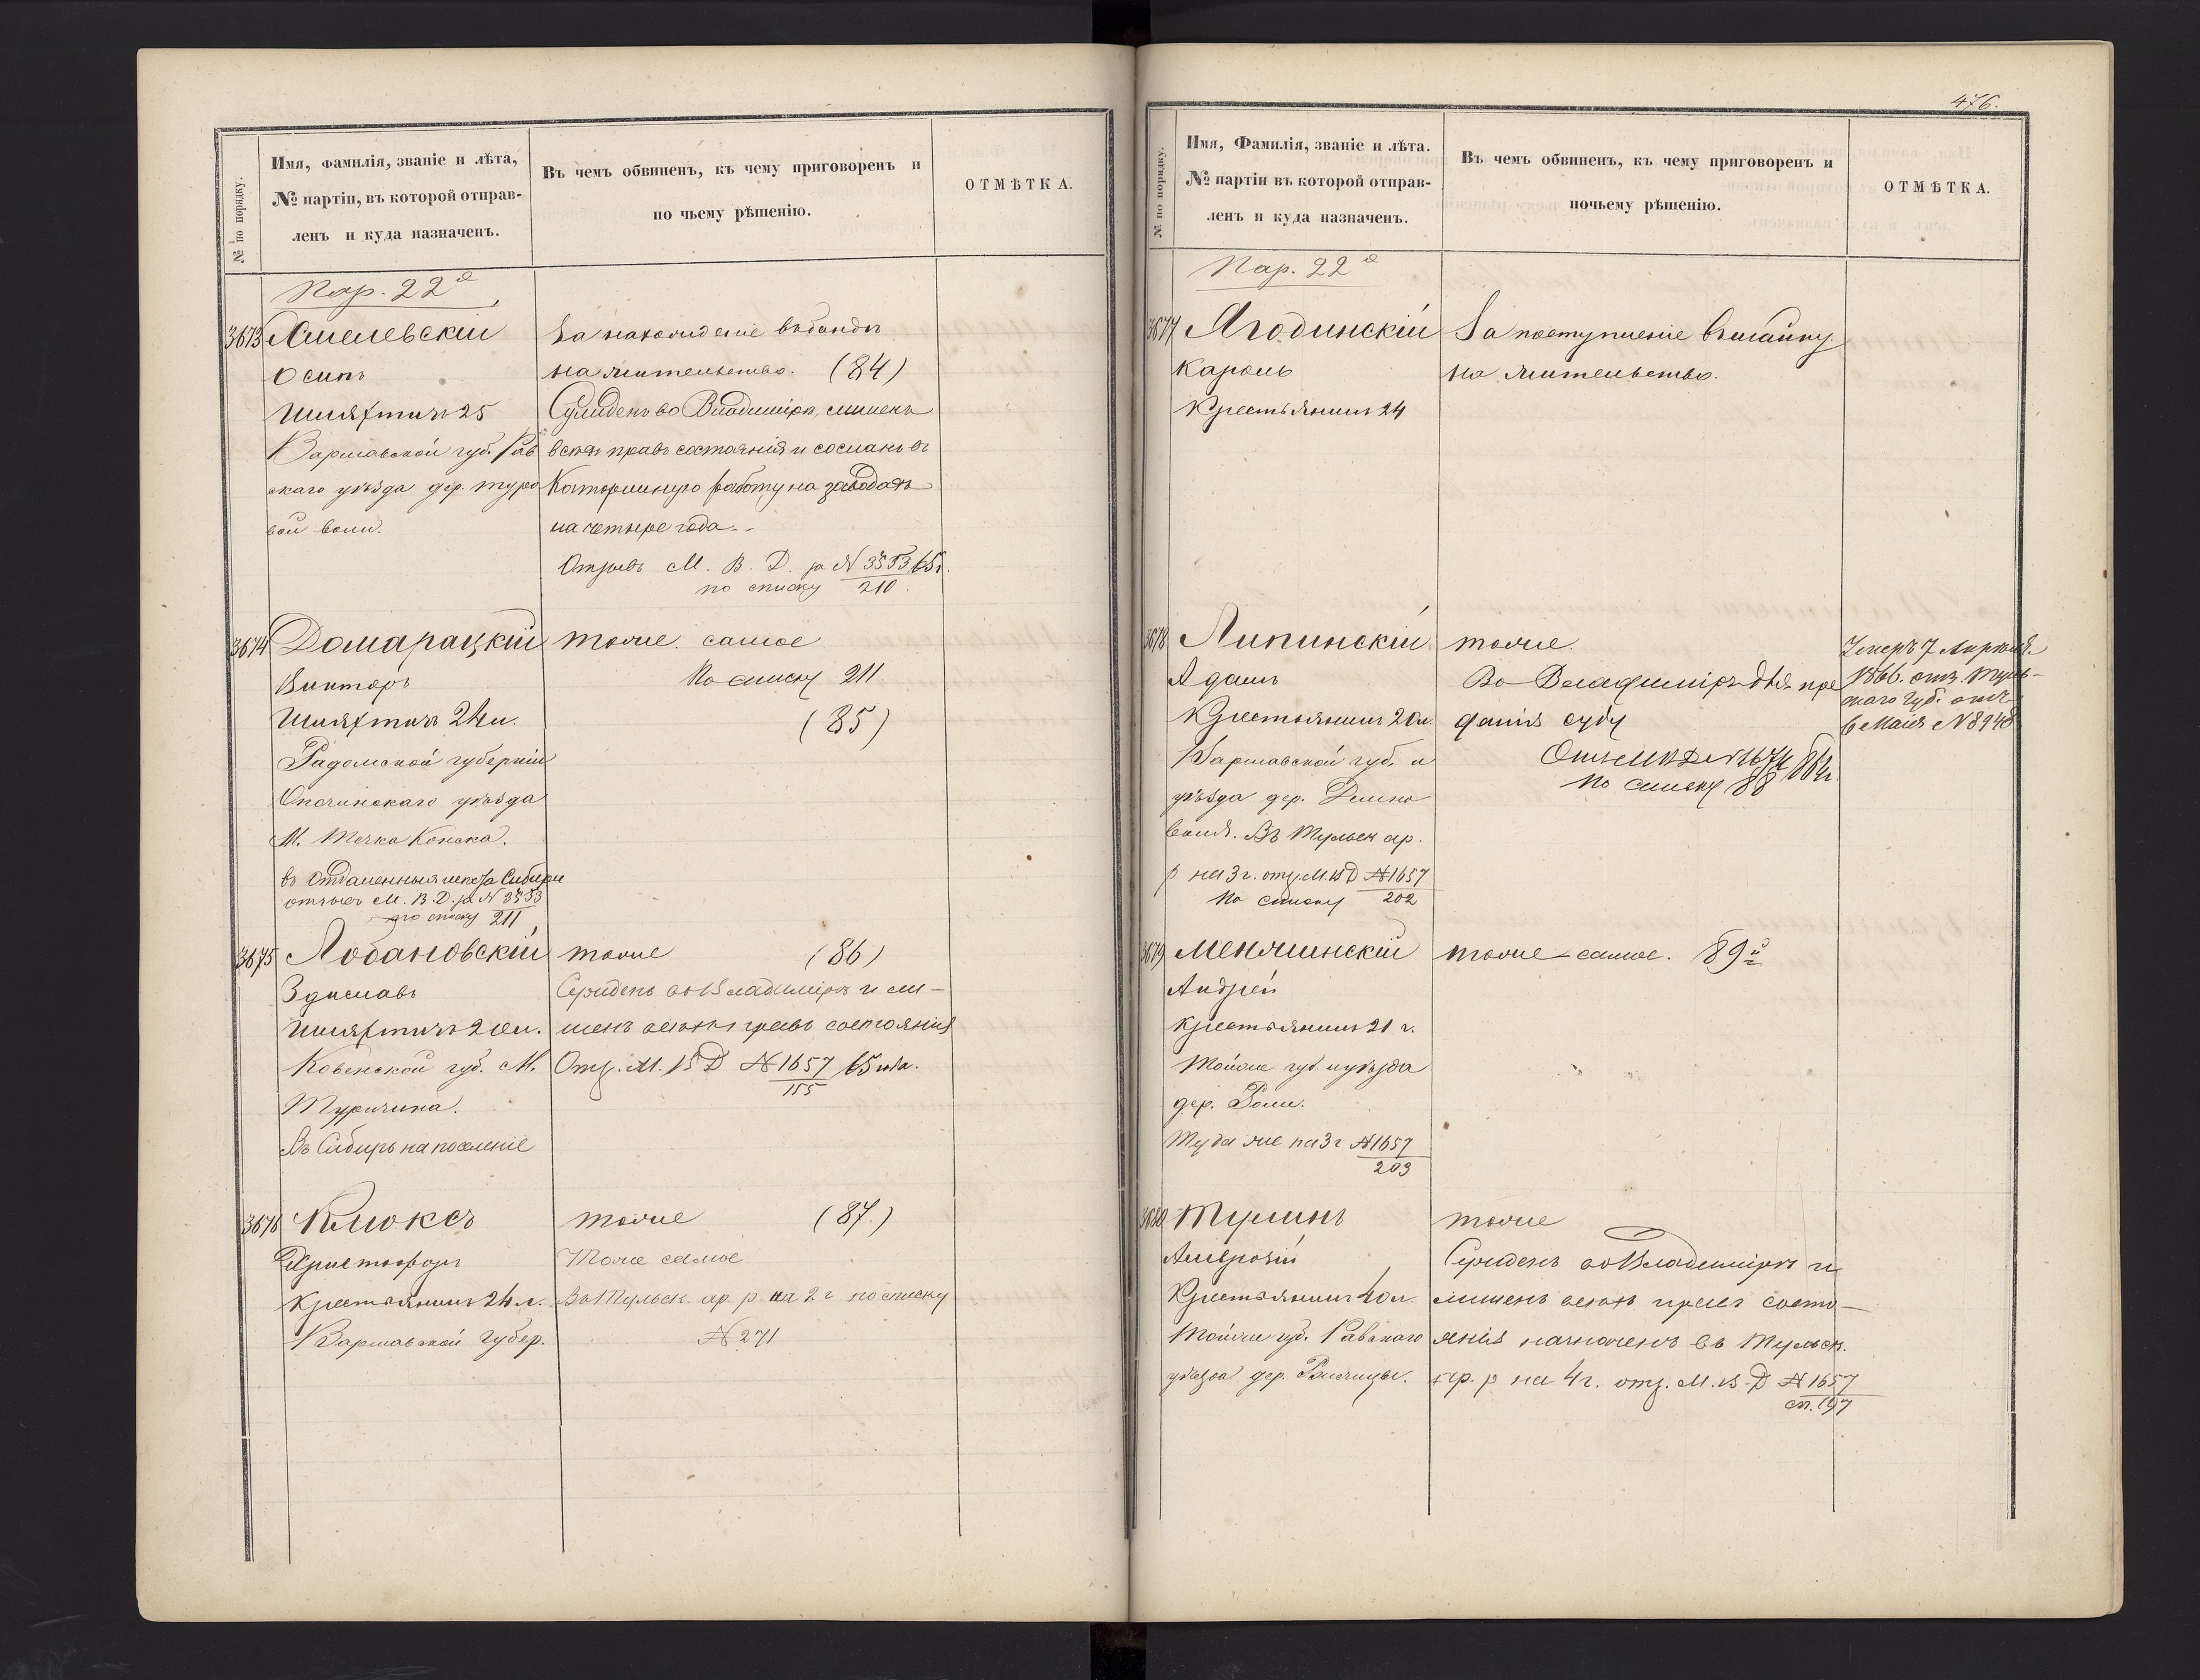 № по порядку.
Имя, фамилія, званіе и лѣта,
№ партіи, въ которой отправ-
ленъ и куда назначенъ.
Въ чемъ обвиненъ, къ чему приговоренъ и
по чьему рѣшенію.
ОТМѢТКА.
Пар. 22й
3673
Хмелевскій
Осипъ
Шляхтичъ 25
Варшавской губ. Рав
скаго уѣзда дер. Туро
вой воли.
За нахожденіе въ банды
на жительство. (84)
Сужденъ во Владимірѣ, лишенъ
всѣхъ правъ состоянія и сосланъ въ
Каторжную работу на заводахъ
на четыре года.
Отзывъ М. В. Д. за № 3553 65 г.
по списку 210.
3674
Домарацкій
Викторъ
Шляхтичъ 24 л.
Радомской губерніи
Опочинскаго уѣзда
М. Конска.
въ отдаленныя мѣста Сибири
отзывъ М. В. Д. за № 3553
по списку 211
тоже самое
По списку 211
(85)
3675
Лобановскій
Здиславъ
Шляхтичъ 20 л.
Ковенской губ. М.
Въ Сибирь на поселеніе
тоже (86)
Сужденъ во Владимірѣ и ли-
шенъ всѣхъ правъ состоянія
Отз. М. В Д № 1657 65 года.
155
3676
Клюксъ
Христофоръ
Крестьянинъ 24 л.
Варшавской Губер.
тоже (87.)
Тоже самое
Въ Тульск. ар. р. на 2 г по списку
№ 271
476.
№ по порядку.
Имя, Фамилія, званіе и лѣта.
№ партіи въ которой отправ-
ленъ и куда назначенъ.
Въ чемъ обвиненъ, къ чему приговоренъ и
почьему рѣшенію.
ОТМѢТКА.
Пар. 22й
3677
Ягодинскій
Кароль
Крестьянинъ 24
За поступленіе въ шайку
на жительство.
3678
Липинскій
Адамъ
Крестьянинъ 20 л.
Варшавской губ. и
уѣзда дер.
воля. Въ Тульск ар.
р на 3 г. отз. М. В Д № 1657
По списку 202
тоже.
Во Владиміръ для пре
данія суду
По списку 88
Умеръ 7 Апрѣля
1866. отз. Туль-
скаго Губ. отъ
6 Маія № 8948
3679
Менжинскій
Андрей
Крестьянинъ 21 г.
Тойже губ. и уѣзда
дер.
Туда же на 3 г № 1657
203
тоже самое. 89й
3680
Амвросій
Крестьянинъ 40 л.
Тойже губ. Равскаго
уѣзда дер.
тоже
Сужденъ во Владимірѣ и
лишенъ всѣхъ правъ состо-
янія назначенъ въ Тульск.
ар. р на 4 г. отз. М. В. Д № 1657
сп. 197